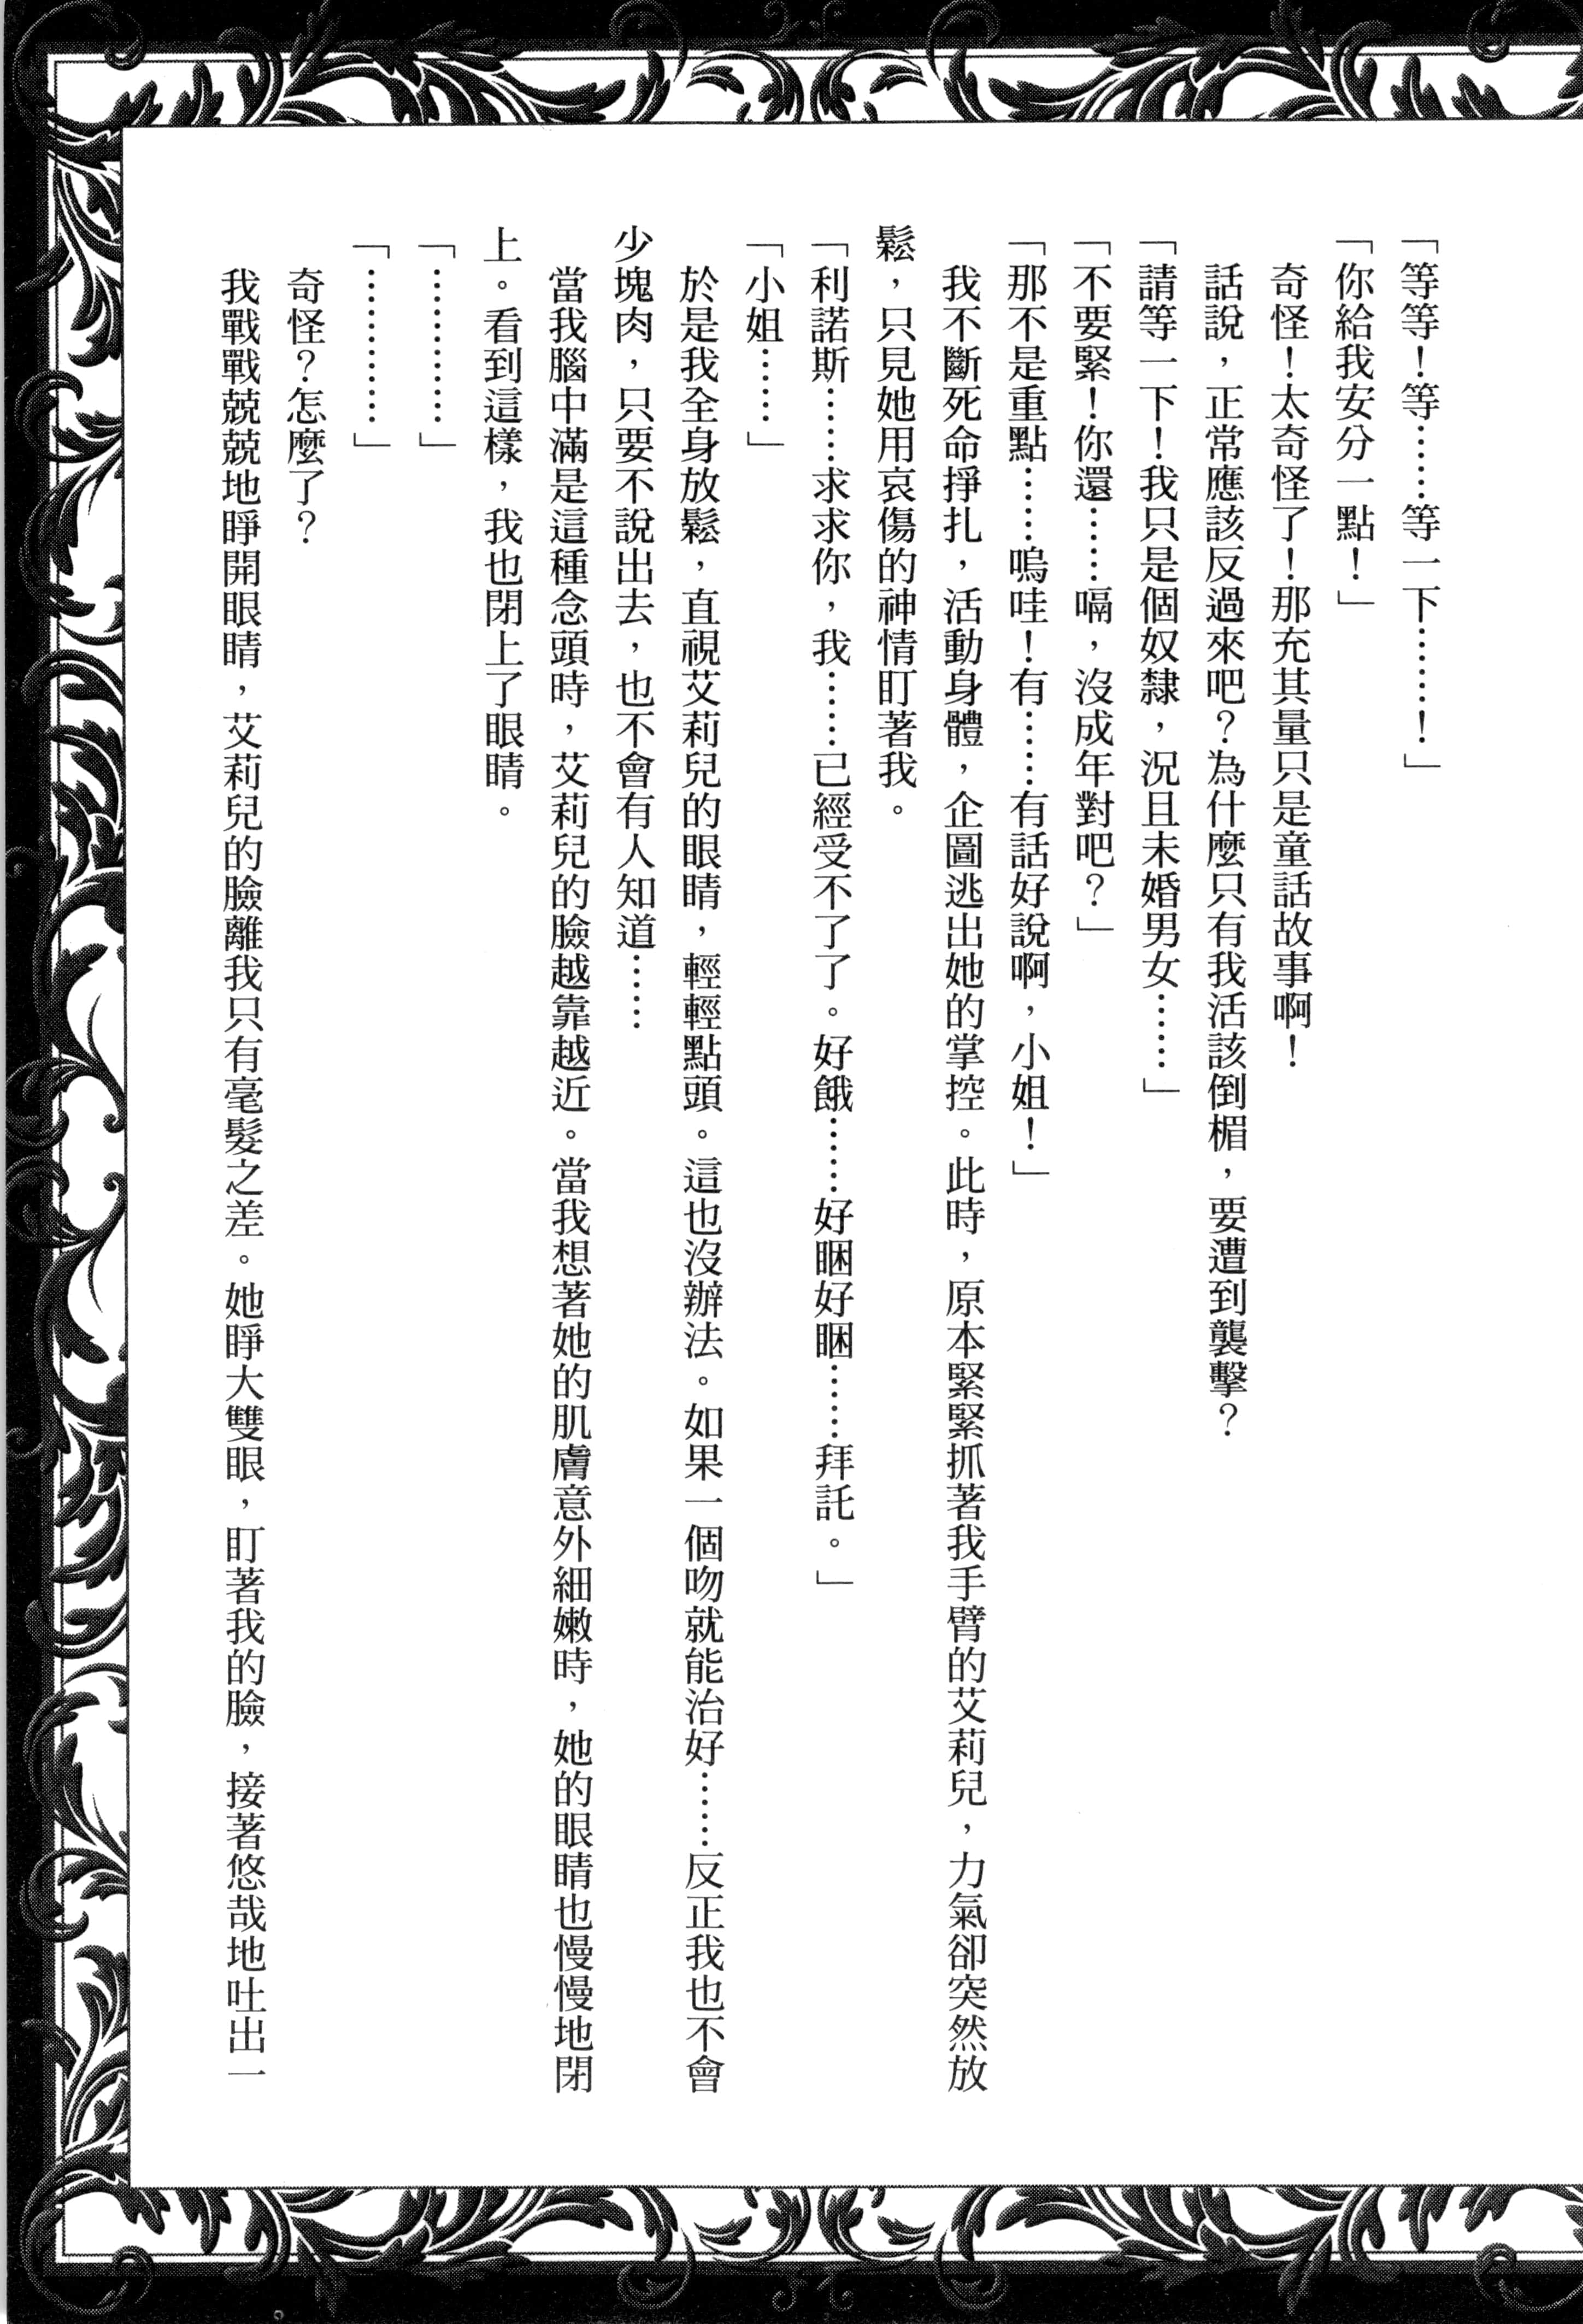 「等等！等……等一下………！」
「你給我安分一點！」
奇怪！太奇怪了！那充其量只是童話故事啊！
話說，正常應該反過來吧？為什麼只有我活該倒楣，要遭到襲擊？
「請等一下！我只是個奴隸，況且未婚男女………」
「不要緊！你還……嗝，沒成年對吧？」
「那不是重點……嗚哇！有……有話好說啊，小姐！」
我不斷死命掙扎，活動身體，企圖逃出她的掌控。此時，原本緊緊抓著我手臂的艾莉兒，力氣卻突然放
鬆，只見她用哀傷的神情盯著我。
「利諾斯……求求你，我……已經受不了了。好餓……好睏好睏……拜託。」
「小姐……」
於是我全身放鬆，直視艾莉兒的眼睛，輕輕點頭。這也沒辦法。如果一個吻就能治好……反正我也不會
少塊肉，只要不說出去，也不會有人知道……
當我腦中滿是這種念頭時，艾莉兒的臉越靠越近。當我想著她的肌膚意外細嫩時，她的眼睛也慢慢地閉
上。看到這樣，我也閉上了眼睛。
「…………」
「…………」
奇怪？怎麼了？
我戰戰兢兢地睜開眼睛，艾莉兒的臉離我只有毫髮之差。她睜大雙眼，盯著我的臉，接著悠哉地吐出一